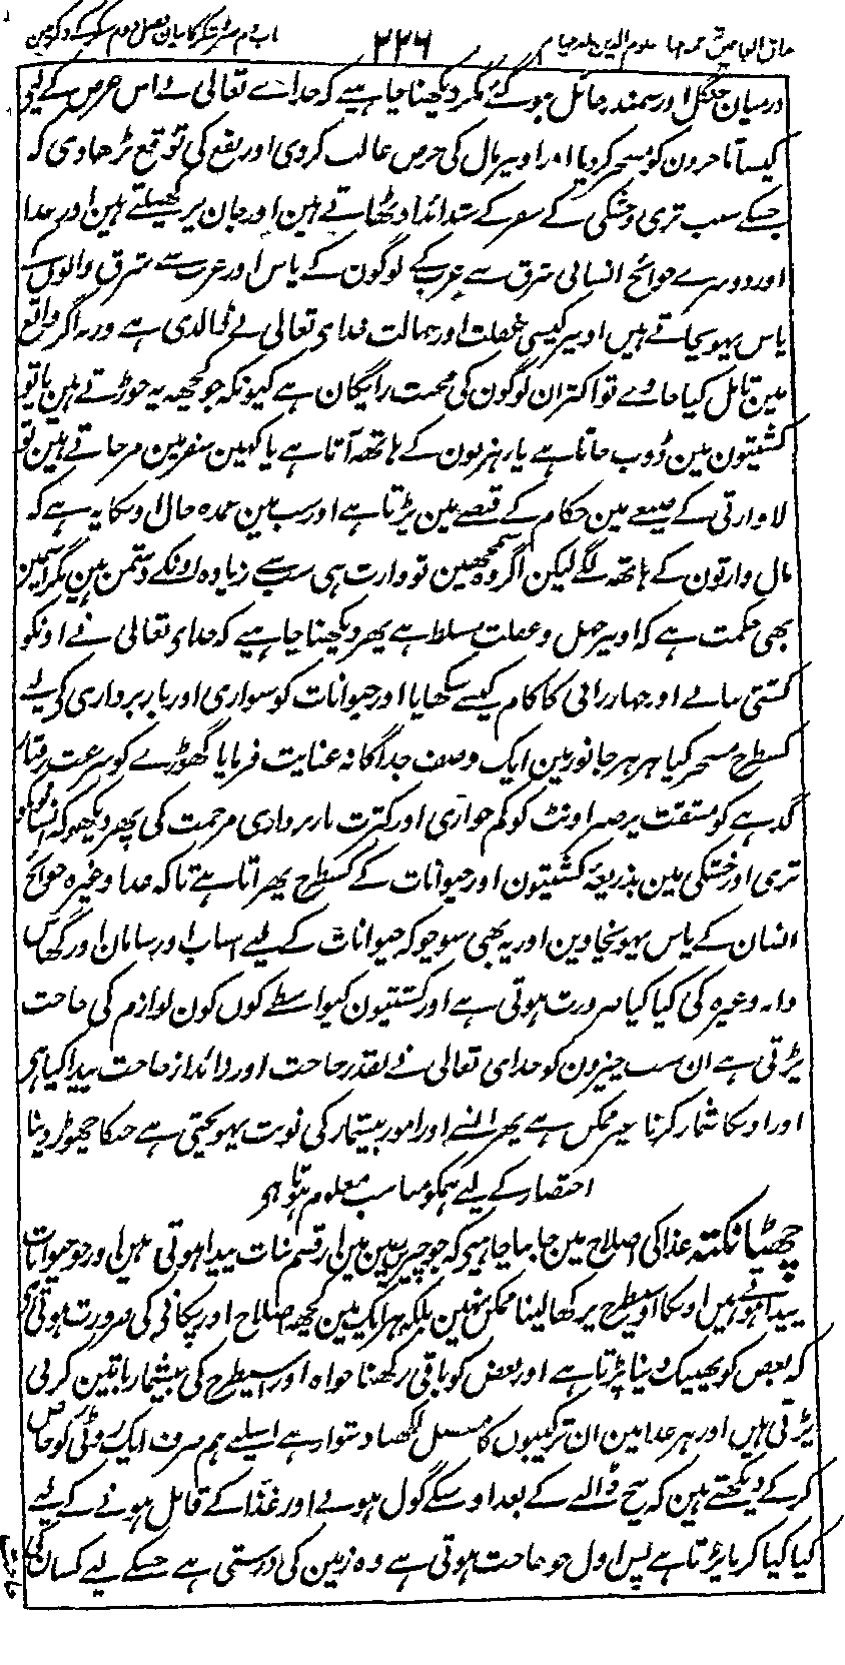 ۲۲۶
درمیان جنگل اور سمندر حائل ہوگئے مگر دیکھنا چاہیے کہ خداے تعالی نے اس غرض کے لیے
کیسا تاجرون کو مسخر کردیا اور اوپر مال کی حرص غالب کردی اور نفع کی توقع بڑھا دی کہ
جسکے سبب تری وخشکی کے سفر کے شدائد اوٹھاتے ہین اور جان پر کھیلتے ہین اور غذا
اور دوسرے حوائج انسانی شرق سے غرب کے لوگون کے پاس اور غرب سے شرق والون کے
پاس پہونچاتے ہیں اوپر کیسی غفلت اور جہالت خدای تعالی نے ڈالدی ہے ورنہ اگر واقع
مین تامل کیا جاوے تو اکثر ان لوگون کی محنت رایگان ہے کیونکہ جو کچھہ یہ جوڑتے ہین یا تو
کشتیون مین ڈوب جاتا ہے یا رہزنون کے ہاتھہ آتا ہے یا کہین سفر مین مرجاتے ہین تو
لاوارثی کے صیغے مین حکام کے قبضے مین پڑتا ہے اور سب مین عمدہ حال اوسکا یہ ہے کہ
مال وارثون کے ہاتھہ لگے لیکن اگر وہ سمجھین تو وارث ہی سب سے زیادہ اونکے دشمن ہین مگر اسمین
بھی حکمت ہے کہ اوپر جہل وغفلت مسلط ہے پھر دیکھنا چاہیے کہ خدای تعالی نے اونکو
کشتی بنانے اور جہازرانی کا کام کیسے سکھایا اور حیوانات کو سواری اور باربرداری کے لیے
کسطرح مسخر کیا ہر ہر جانور مین ایک وصف جداگانہ عنایت فرمایا گھوڑے کو سرعت رفتار
گدہے کو مشقت پر صبر اونٹ کو کم خواری اور کثرت باربرداری مرحمت کی پھر دیکھو کہ انسانونکو
تری اور خشکی مین بذریعۂ کشتیون اور حیوانات کے کسطرح پھراتا ہے تاکہ غذا وغیرہ حوائج
انسان کے پاس پہونچاوین اور یہ بھی سوچو کہ حیوانات کے لیے اسباب اور سامان اور گھاس
دانہ وغیرہ کی کیا کیا ضرورت ہوتی ہے اور کشتیون کیواسطے کون کون لوازم کی حاجت
پڑتی ہے ان سب چیزون کو خدای تعالی نے بقدر حاجت اور زائد از حاجت پیدا کیا ہی
اور اوسکا شمار کرنا غیر ممکن ہے پھر اسنے اور امور بیشمار کی نوبت پہونچتی ہے جنکا چھوڑ دینا
اختصار کے لیے ہمکو مناسب معلوم ہوتا ہی
چھٹا نکتہ غذا کی اصلاح مین جاننا چاہیے کہ جو چیزین زمین مین از قسم نبات پیدا ہوتی ہیں اور جو حیوانات
پیدا ہوتے ہیں اوسکا اوسیطرح پر کھا لینا ممکن نہین بلکہ ہر ایک مین کچھہ اصلاح اور پکانے کی ضرورت ہوتی ہی
کہ بعض کو پھینک دینا پڑتا ہے اور بعض کو باقی رکھنا خواہ اور اسیطرح کی بیشمار باتین کرنی
پڑتی ہیں اور ہر غذا مین ان ترکیبون کا مفصل لکھنا دشوار ہے اسلیے ہم صرف ایک روٹی کو خاص
کرکے دیکھتے ہین کہ بیج ڈالنے کے بعد اوسکے گول ہونے اور غذا کے قابل ہونے کے لیے
کیا کیا کرنا پڑتا ہے پس اول جو حاجت ہوتی ہے وہ زمین کی درستی ہے جسکے لیے کسان کی